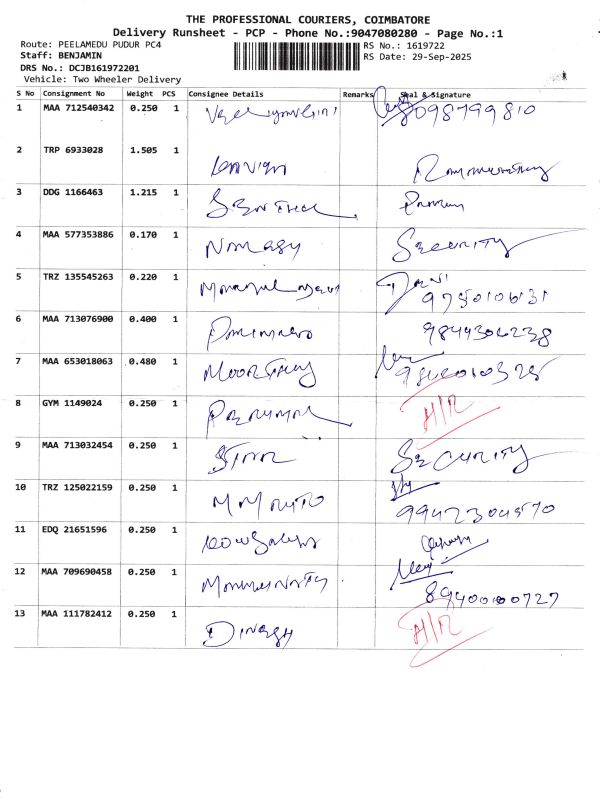 THE PROFESSIONAL COURIERS, COIMBATORE
Delivery Runsheet - PCP - Phone No.:9047080280 - Page No.:1
Route: PEELAMEDU PUDUR PC4
RS No.: 1619722
Staff: BENJAMIN
RS Date: 29-Sep-2025
DRS No.: DCJB161972201
Vehicle: Two Wheeler Delivery
S No Consignment No Weight PCS Consignee Details Remarks Seal & Signature
1 MAA 712540342 0.250 1 8098799810
2 TRP 6933028 1.505 1
3 DDG 1166463 1.215 1 SENTHIL
4 MAA 577353886 0.170 1 SECURITY
5 TRZ 135545263 0.220 1
6 MAA 713076900 0.400 1 9844306238
7 MAA 653018063 0.480 1 MOORTHY
8 GYM 1149024 0.250 1 PERUMAL H/R
9 MAA 713032454 0.250 1 STAR SECURITY
10 TRZ 125022159 0.250 1
11 EDQ 21651596 0.250 1
12 MAA 709690458 0.250 1
13 MAA 111782412 0.250 1 DINESH H/R